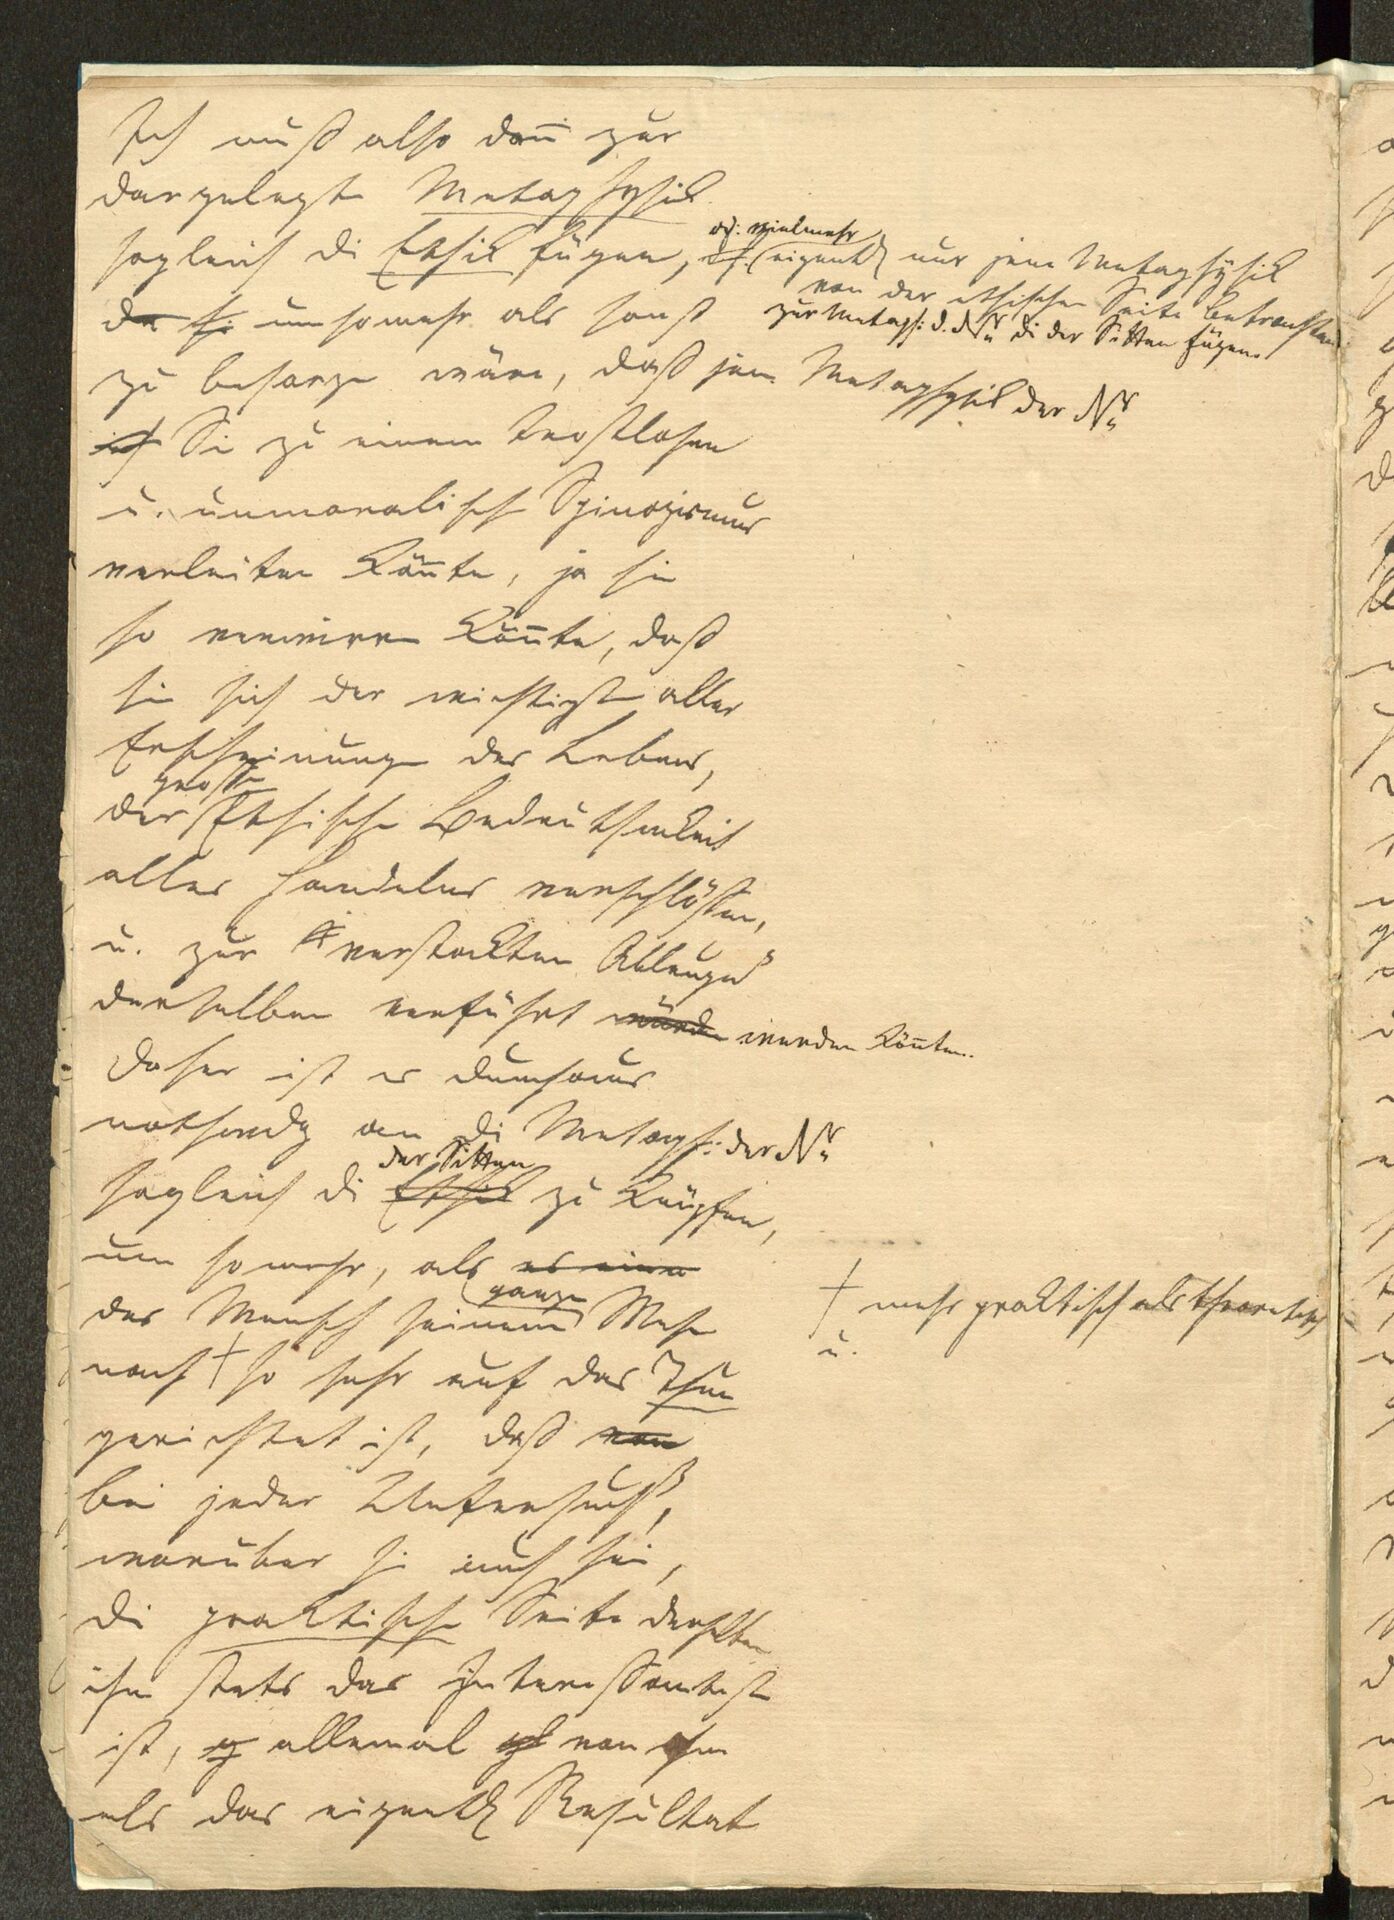 Ich muß also dann zur
dargelegten Metaphysik
sogleich die Ethik fügen,
od: vielmehr
(eigentl nur jene Metaphysik
von der ethischen Seite betrachten
zur Metaph: d. Nr die der Sitten fügen.
umsomehr als sonst
zu besorgen wäre, daß jene Metaphysik der Nr
Sie zu einem trostlosen
u. unmoralischen Spinozismus
verleiten könnte, ja sie
so verwirren könnte, daß
sie sich der wichtigsten aller
Erscheinungen des Lebens,
große
der Ethischen Bedeutsamkeit
alles Handelns verschlössen,
u. zur verstockten Ableugng
derselben verführt würden werden könnten.
Daher ist es durchaus
nothwendig an die Metaph: der Nr
der Sitten
sogleich die Ethik zu knüpfen,
um so mehr, als es eine
ganzen
der Mensch seinem Wesen
nach † so sehr auf das Thun
† mehr praktisch als theoretisch
u.
gerichtet ist, daß von
bei jeder Untersuchg,
worüber sie auch sei,
die praktische Seite derselben
ihm stets das Interessanteste
ist, allemal von ihm
als das eigentl Resultat